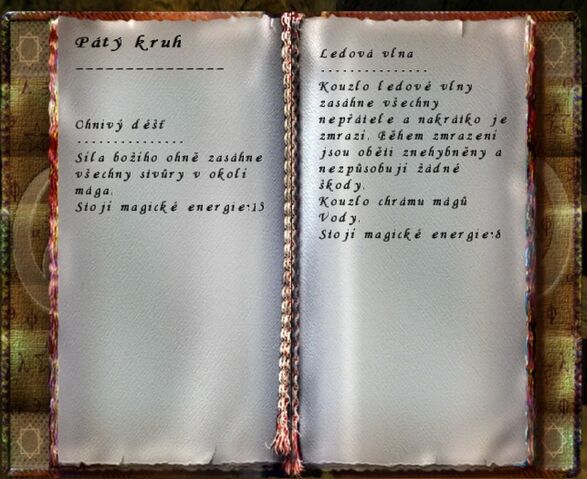 Pátý kruh
---------------
Ohnivý déšť
---------------
Síla božího ohně zasáhne
všechny stvůry v okolí
mága.
Stojí magické energie:15
Ledová vlna
---------------
Kouzlo ledové vlny
zasáhne všechny
nepřátele a nakrátko je
zmrazí. Během zmrazení
jsou oběti znehybněny a
nezpůsobují žádné
škody.
Kouzlo chrámu mágů
Vody.
Stojí magické energie:8